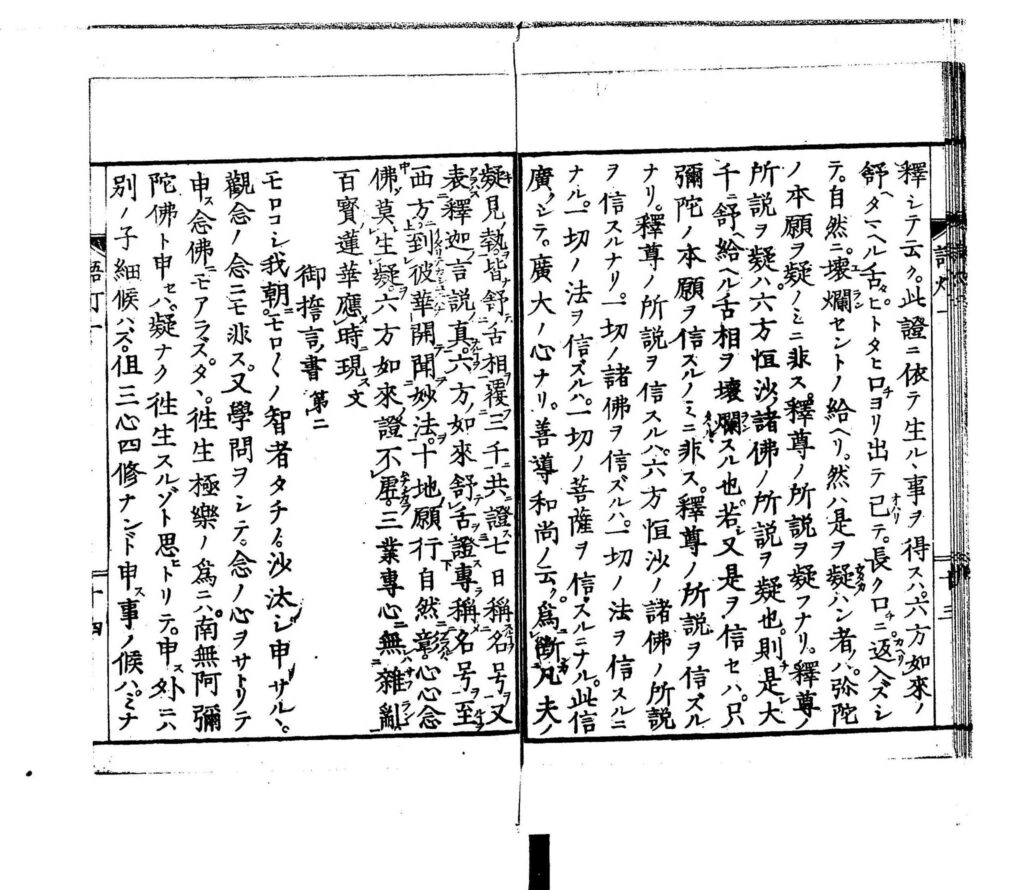 釋シテ云ク。此證ニ依テ生ル丶事ヲ得スハ。六方如來ノ
舒ヘタマヘル舌ヒトタヒロヨリ出テ已テ。長クロニ返入ズシ
テ。自然ニ壞爛セントノ給ヘリ。然ハ是ヲ疑ハン者ハ。弥陀
ノ本願ヲ疑ノミニ非ス。釋尊ノ所説ヲ疑フナリ。釋尊ノ
所説ヲ疑ハ。六方恒沙諸佛ノ所説ヲ疑也。則是大
千ニ舒ヘ給ヘル舌相ヲ壞爛スル也。若シ又是ヲ信セハ。只
彌陀ノ本願ヲ信スルノミニ非ス。釋尊ノ所説ヲ信ズル
ナリ。釋尊ノ所説ヲ信スルハ。六方恒沙ノ諸佛ノ所説
ヲ信スルナリ。一切ノ諸佛ヲ信ズルハ。一切ノ法ヲ信スルニ
ナル。一切ノ法ヲ信ズルハ。一切ノ菩薩ヲ信スルニナル。此信
廣クシテ。廣大ノ心ナリ。善導和尚ノ云ク。爲斷凡夫ノ
疑見ノ執。皆舒舌相覆三千。共證七日稱名号。又
表釋迦言説真。六方ノ如來舒舌證。專稱名号至
西方。到彼華開聞妙法。十地願行自然彰。心心念
佛莫生疑。六方如來證不虚。三業專心無雜亂
百寶蓮華應時現文
御誓言ノ書 第二
モロコシ我朝ニモロ〳〵ノ智者タチノ。沙汰シ申サル丶。
觀念ノ念ニモ非ス。又學問ヲシテ。念ノ心ヲサトリテ
申ス念佛ニモアラズ。タ丶往生極樂ノ爲ニハ。南無阿彌
陀佛ト申セハ。疑ナク往生スルゾト思ヒトリテ。申ス外ニハ
別ノ子細候ハズ。但三心四修ナンド申ス事ノ候ハ。ミナ